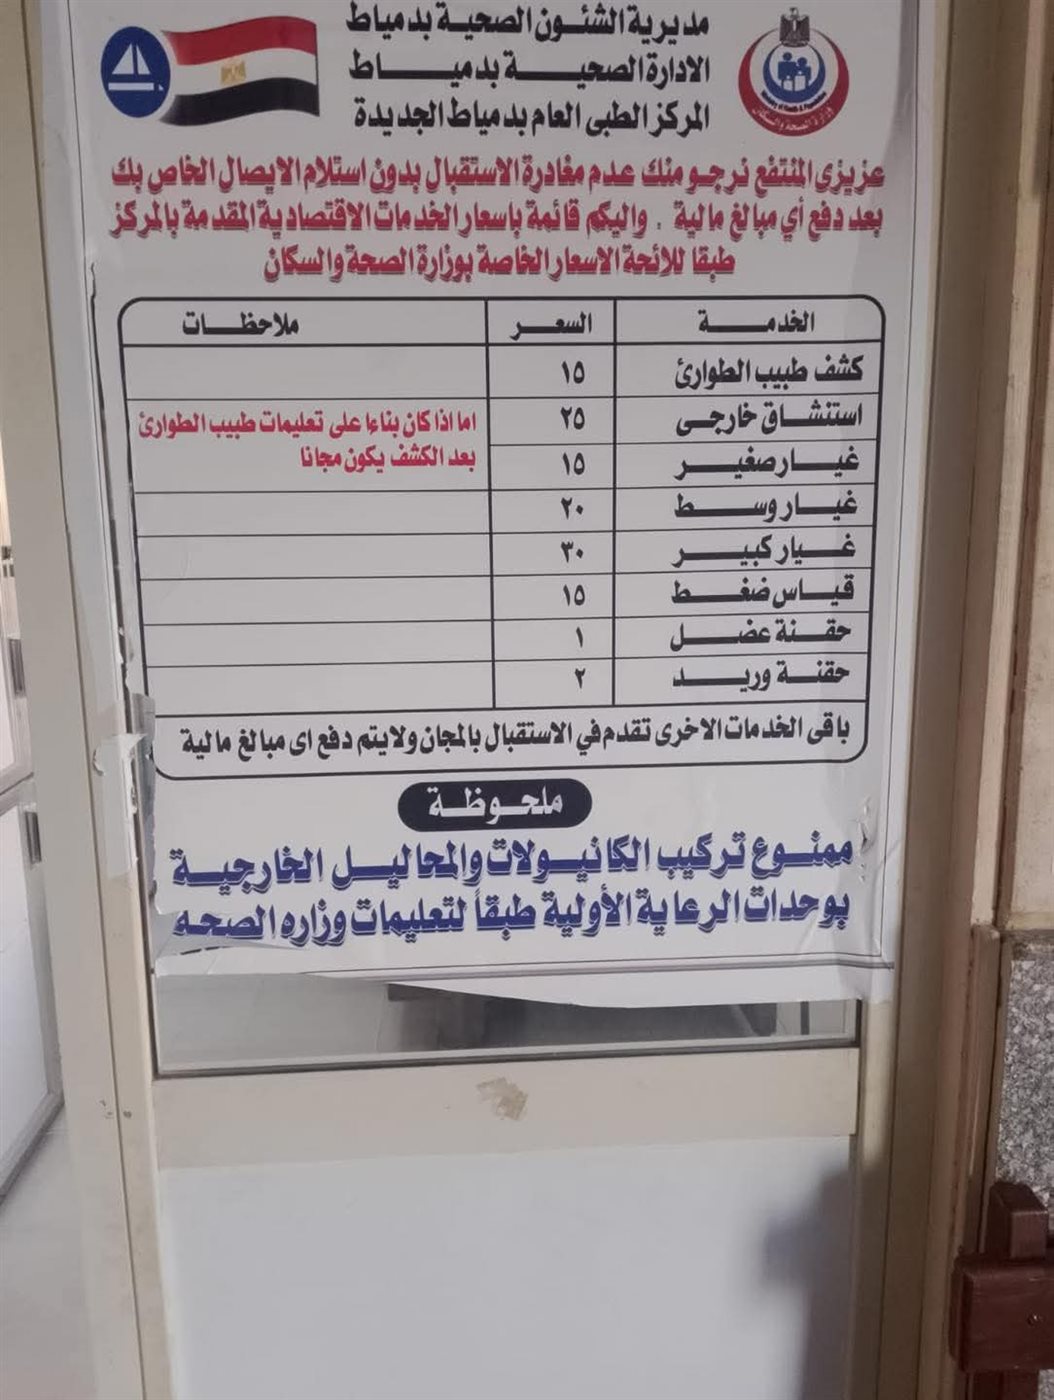 مديرية الشئون الصحية بدمياط
الادارة الصحية بدمياط
المركز الطبى العام بدمياط الجديدة
Ministry of Health & Population
وزارة الصحة والسكان
عزيزى المنتفع نرجو منك عدم مغادرة الاستقبال بدون استلام الايصال الخاص بك
بعد دفع أي مبالغ مالية . واليكم قائمة باسعار الخدمات الاقتصادية المقدمة بالمركز
طبقا للائحة الاسعار الخاصة بوزارة الصحة والسكان
الخدمة السعر ملاحظات
كشف طبيب الطوارئ ١٥
استنشاق خارجى ٢٥ اما اذا كان بناءا على تعليمات طبيب الطوارئ
غيار صغير ١٥ بعد الكشف يكون مجانا
غيار وسط ٢٠
غيار كبير ٣٠
قياس ضغط ١٥
حقنة عضل ١
حقنة وريد ٢
باقى الخدمات الاخرى تقدم في الاستقبال بالمجان ولايتم دفع اى مبالغ مالية
ملحوظة
ممنوع تركيب الكانيولات والمحاليل الخارجية
بوحدات الرعاية الأولية طبقاً لتعليمات وزاره الصحه